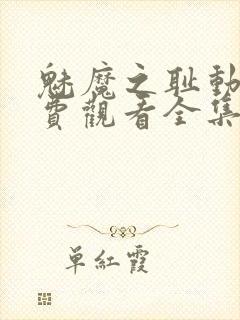 魅魔之耻動
費觀看全集
单紅霞